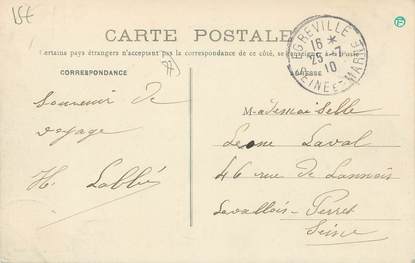 15f
CARTE POSTALE
Certains pays étrangers n'acceptent pas la correspondance de ce côté, se
CORRESPONDANCE
ADRESSE
EGREVILLE
16 *
25 - 7
10
SEINE ET MARNE
Souvenir de
voyage
H. Labbé
Mademoiselle
Leone Laval
46 rue de Lannois
Levallois-Perret
Seine